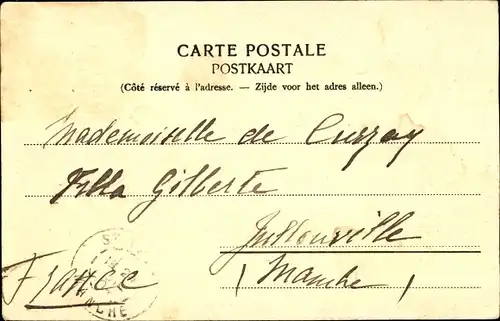 CARTE POSTALE
POSTKAART
(Côté réservé à l'adresse. — Zijde voor het adres alleen.)
Mademoiselle de Curzay
Villa Gilberte
Jullouville
(Manche)
France
NCHE